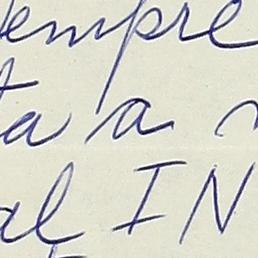 empre
ta a
al IN